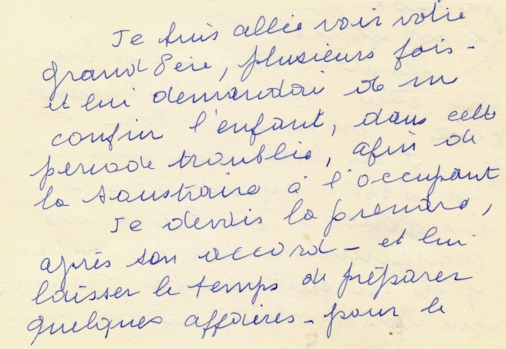 Je suis allée voir votre
grand Père, plusieurs fois -
et lui demandai de me
confier l'enfant, dans cette
période troublée, afin de
la soustraire à l'occupant
Je devais la prendre,
après son accord - et lui
laisser le temps de préparer
quelques affaires - pour le